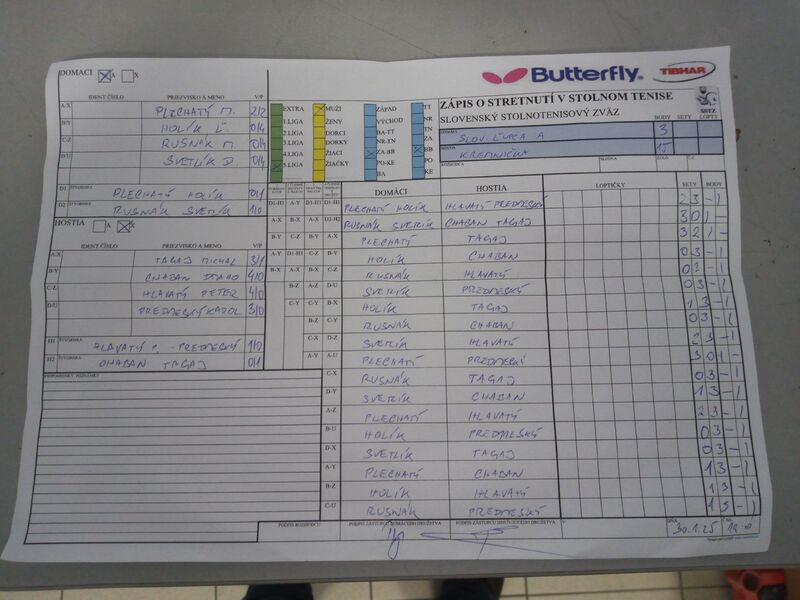 DOMACI X A X
Butterfly
TIBHAR
IDENT ČÍSLO PRIEZVISKO A MENO V/P
A/X PLECHATÝ M. 2/2
B/Y HOLÍK Ľ 0/4
C/Z RUSNÁK M. 0/4
D/U SVETLÍK D 0/4
EXTRA MUŽI ZÁPAD TT
1.LIGA ŽENY VÝCHOD NR
2.LIGA DORCI BA-TT TN
3.LIGA DORKY NR-TN ZA
4.LIGA ŽIACI ZA-BB BB
5.LIGA ŽIAČKY PO-KE PO
BA KE
ZÁPIS O STRETNUTÍ V STOLNOM TENISE
SLOVENSKÝ STOLNOTENISOVÝ ZVÄZ
SSTZ
BODY SETY LOPTY
SLOV. ĽUPČA A 3
KREMNIČKA 15
D1 ŠTVORHRA PLECHATÝ HOLÍK 0/1
D2 ŠTVORHRA RUSNÁK SVETLÍK 1/0
HOSTIA A X
IDENT ČÍSLO PRIEZVISKO A MENO V/P
A/X TAGAJ MICHAL 3/1
B/Y CHABAN 4/0
C/Z HLAVATÝ PETER 4/0
D/U PREDMESKÝ KAROL 3/0
H1 ŠTVORHRA HLAVATÝ P. - PREDMESKÝ 1/0
H2 ŠTVORHRA CHABAN TAGAJ 0/1
PRIPOMIENKY, POZNÁMKY
DOMÁCI HOSTIA LOPTIČKY SETY BODY
PLECHATÝ HOLÍK HLAVATÝ PREDMESKÝ 2 3 - 1
RUSNÁK SVETLÍK CHABAN TAGAJ 3 0 1 -
PLECHATÝ TAGAJ 3 2 1 -
HOLÍK CHABAN 0 3 - 1
RUSNÁK HLAVATÝ 0 3 - 1
SVETLÍK PREDMESKÝ 0 3 - 1
HOLÍK TAGAJ 1 3 - 1
RUSNÁK CHABAN 0 3 - 1
SVETLÍK HLAVATÝ 3 - 1
PLECHATÝ PREDMESKÍ 3 0 1 -
C-X RUSNÁK TAGAJ 0 3 - 1
D-Y SVETLÍK CHABAN 1 3 - 1
A-Z PLECHATÝ HLAVATÝ 2 3 - 1
B-U HOLÍK PREDMESKÝ 0 3 - 1
D-X SVETLÍK TAGAJ 0 3 - 1
A-Y PLECHATÝ CHABAN 1 3 - 1
B-Z HOLÍK HLAVATÝ 1 3 - 1
C-U RUSNÁK PREDMESKÝ 1 3 - 1
PODPIS ROZHODCU PODPIS ZÁSTUPCU DOMÁCEHO DRUŽSTVA PODPIS ZÁSTUPCU HOSŤUJÚCEHO DRUŽSTVA V DŇA 30.1.25 ČAS